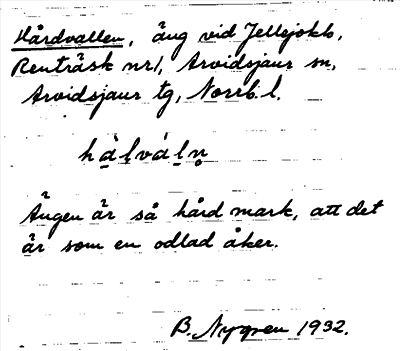 Hårdvallen, äng vid Jellsjokk,
Renträsk nr1, Arvidsjaur sn,
Arvidsjaur tg, Norrb. l.
hà̠ḷvàḷṇ
Ängen är så hård mark, att det
är som en odlad åker.
B. Nygren 1932.